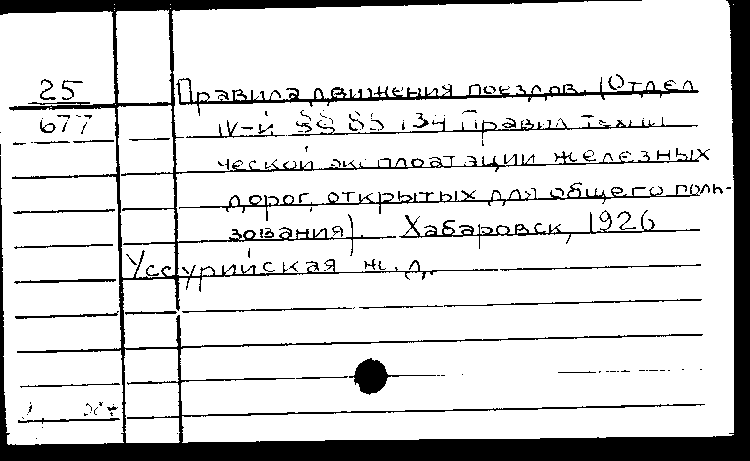 25
677
Правила движения поездов. (Отдел
IV-й §§ 85 134 Правил Техни
ческой эксплоатации железных
дорог, открытых для общего поль-
зования). Хабаровск, 1926
Уссурийская ж. д.